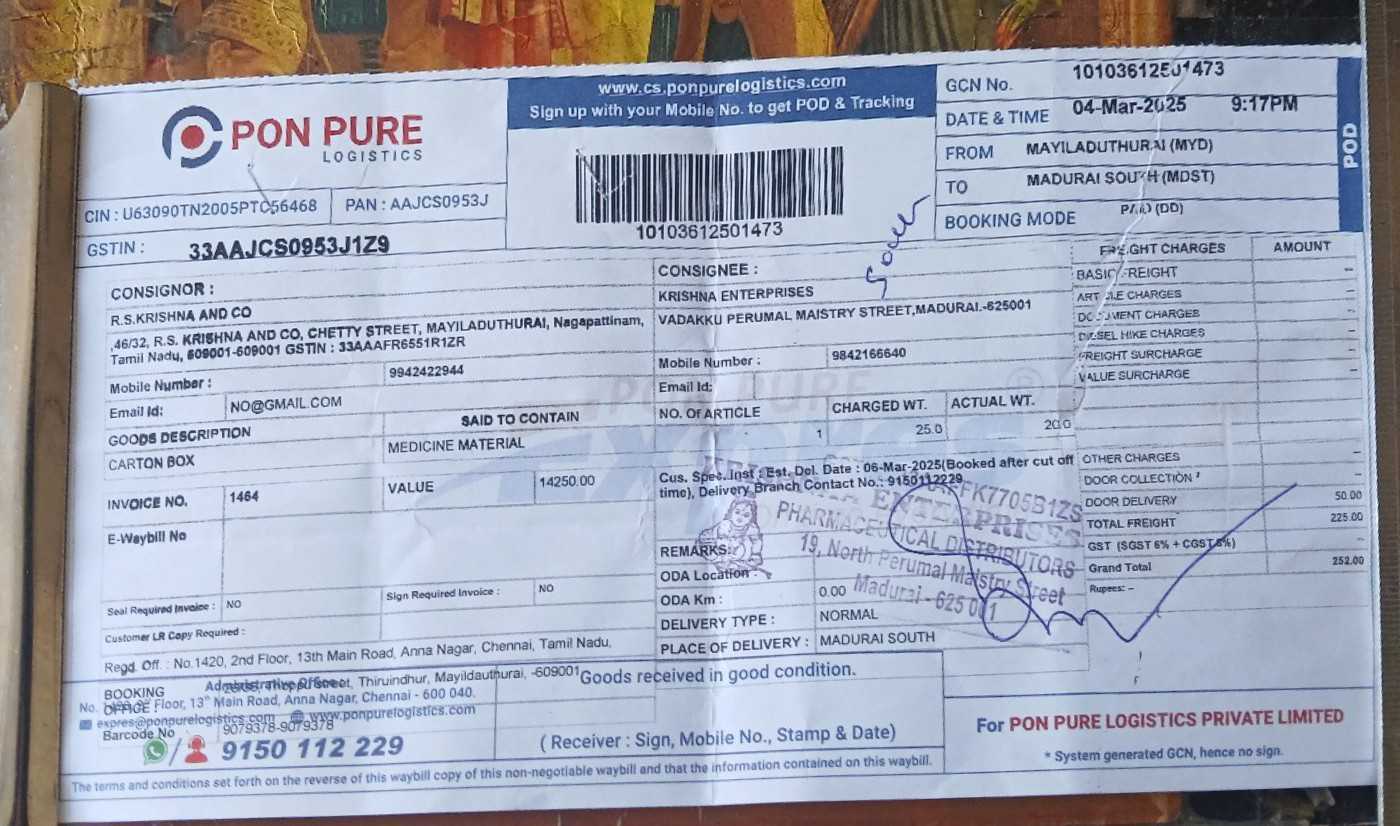 PON PURE
LOGISTICS
www.cs.ponpurelogistics.com
Sign up with your Mobile No. to get POD & Tracking
10103612501473
CIN : U63090TN2005PTC56468 PAN : AAJCS0953J
GSTIN : 33AAJCS0953J1Z9
GCN No. 10103612501473
DATE & TIME 04-Mar-2025 9:17PM
FROM MAYILADUTHURAI (MYD)
TO MADURAI SOUTH (MDST)
BOOKING MODE PAID (DD)
POD
CONSIGNOR :
R.S.KRISHNA AND CO
,46/32, R.S. KRISHNA AND CO, CHETTY STREET, MAYILADUTHURAI, Nagapattinam,
Tamil Nadu, 609001-609001 GSTIN : 33AAAFR6551R1ZR
Mobile Number : 9942422944
Email Id: NO@GMAIL.COM
GOODS DESCRIPTION SAID TO CONTAIN
CARTON BOX MEDICINE MATERIAL
INVOICE NO. 1464 VALUE 14250.00
E-Waybill No
Seal Required Invoice : NO Sign Required Invoice : NO
Customer LR Copy Required :
CONSIGNEE :
KRISHNA ENTERPRISES
VADAKKU PERUMAL MAISTRY STREET,MADURAI.-625001
Mobile Number : 9842166640
Email Id:
NO. OF ARTICLE CHARGED WT. ACTUAL WT.
1 25.0 20.0
Cus. Spec. Inst : Est. Del. Date : 06-Mar-2025(Booked after cut off
time), Delivery Branch Contact No.: 9150112229
REMARKS:
ODA Location :
ODA Km : 0.00
DELIVERY TYPE : NORMAL
PLACE OF DELIVERY : MADURAI SOUTH
ENTERPRISES
PHARMACEUTICAL DISTRIBUTORS
19, North Perumal Maistry Street
Madurai - 625 001
FREIGHT CHARGES AMOUNT
BASIC FREIGHT -
ARTICLE CHARGES -
DOCUMENT CHARGES -
DIESEL HIKE CHARGES -
FREIGHT SURCHARGE -
VALUE SURCHARGE -
OTHER CHARGES -
DOOR COLLECTION -
DOOR DELIVERY 50.00
TOTAL FREIGHT 225.00
GST (SGST 6% + CGST 6%) -
Grand Total 252.00
Rupees: -
Regd. Off. : No.1420, 2nd Floor, 13th Main Road, Anna Nagar, Chennai, Tamil Nadu,
BOOKING
OFFICE
Administrative Office
Street, Thiruindhur, Mayildauthurai, -609001
Floor, 13th Main Road, Anna Nagar, Chennai - 600 040.
expres@ponpurelogistics.com www.ponpurelogistics.com
Barcode No 9079378-9079378
9150 112 229
Goods received in good condition.
( Receiver : Sign, Mobile No., Stamp & Date)
For PON PURE LOGISTICS PRIVATE LIMITED
* System generated GCN, hence no sign.
The terms and conditions set forth on the reverse of this waybill copy of this non-negotiable waybill and that the information contained on this waybill.